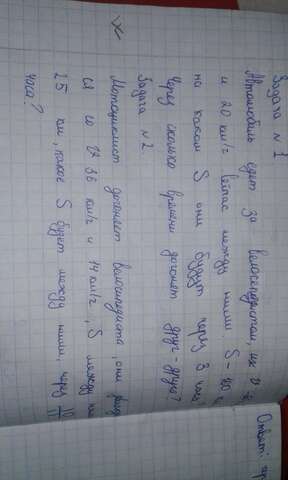 Ответ:
Задача № 1
Автомобиль едет за велосипедистом, их υ
и 20 км/ч сейчас между ними S - 80
на каком S они будут через 3 часа?
Через сколько времени догонят друг-друга?
Задача № 2
Мотоциклист догоняет велосипедиста, они
ся со υ 36 км/ч и 14 км/ч, S между
25 км, какое S будет между ними, через
часа?